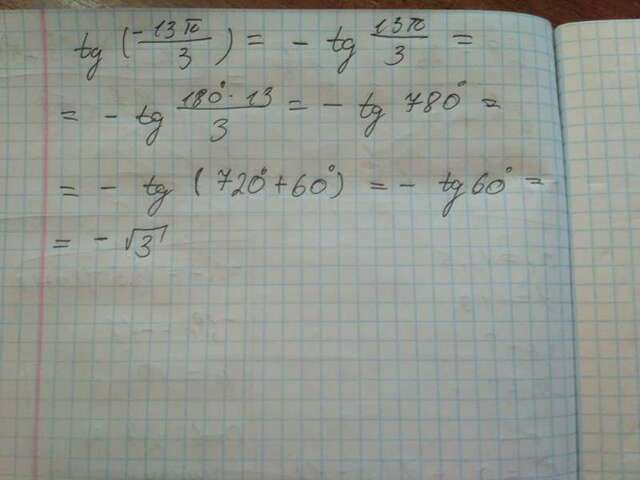 tg (-13π/3) = - tg 13π/3 =
= - tg 180°·13/3 = - tg 780° =
= - tg (720°+60°) = - tg 60° =
= - √3